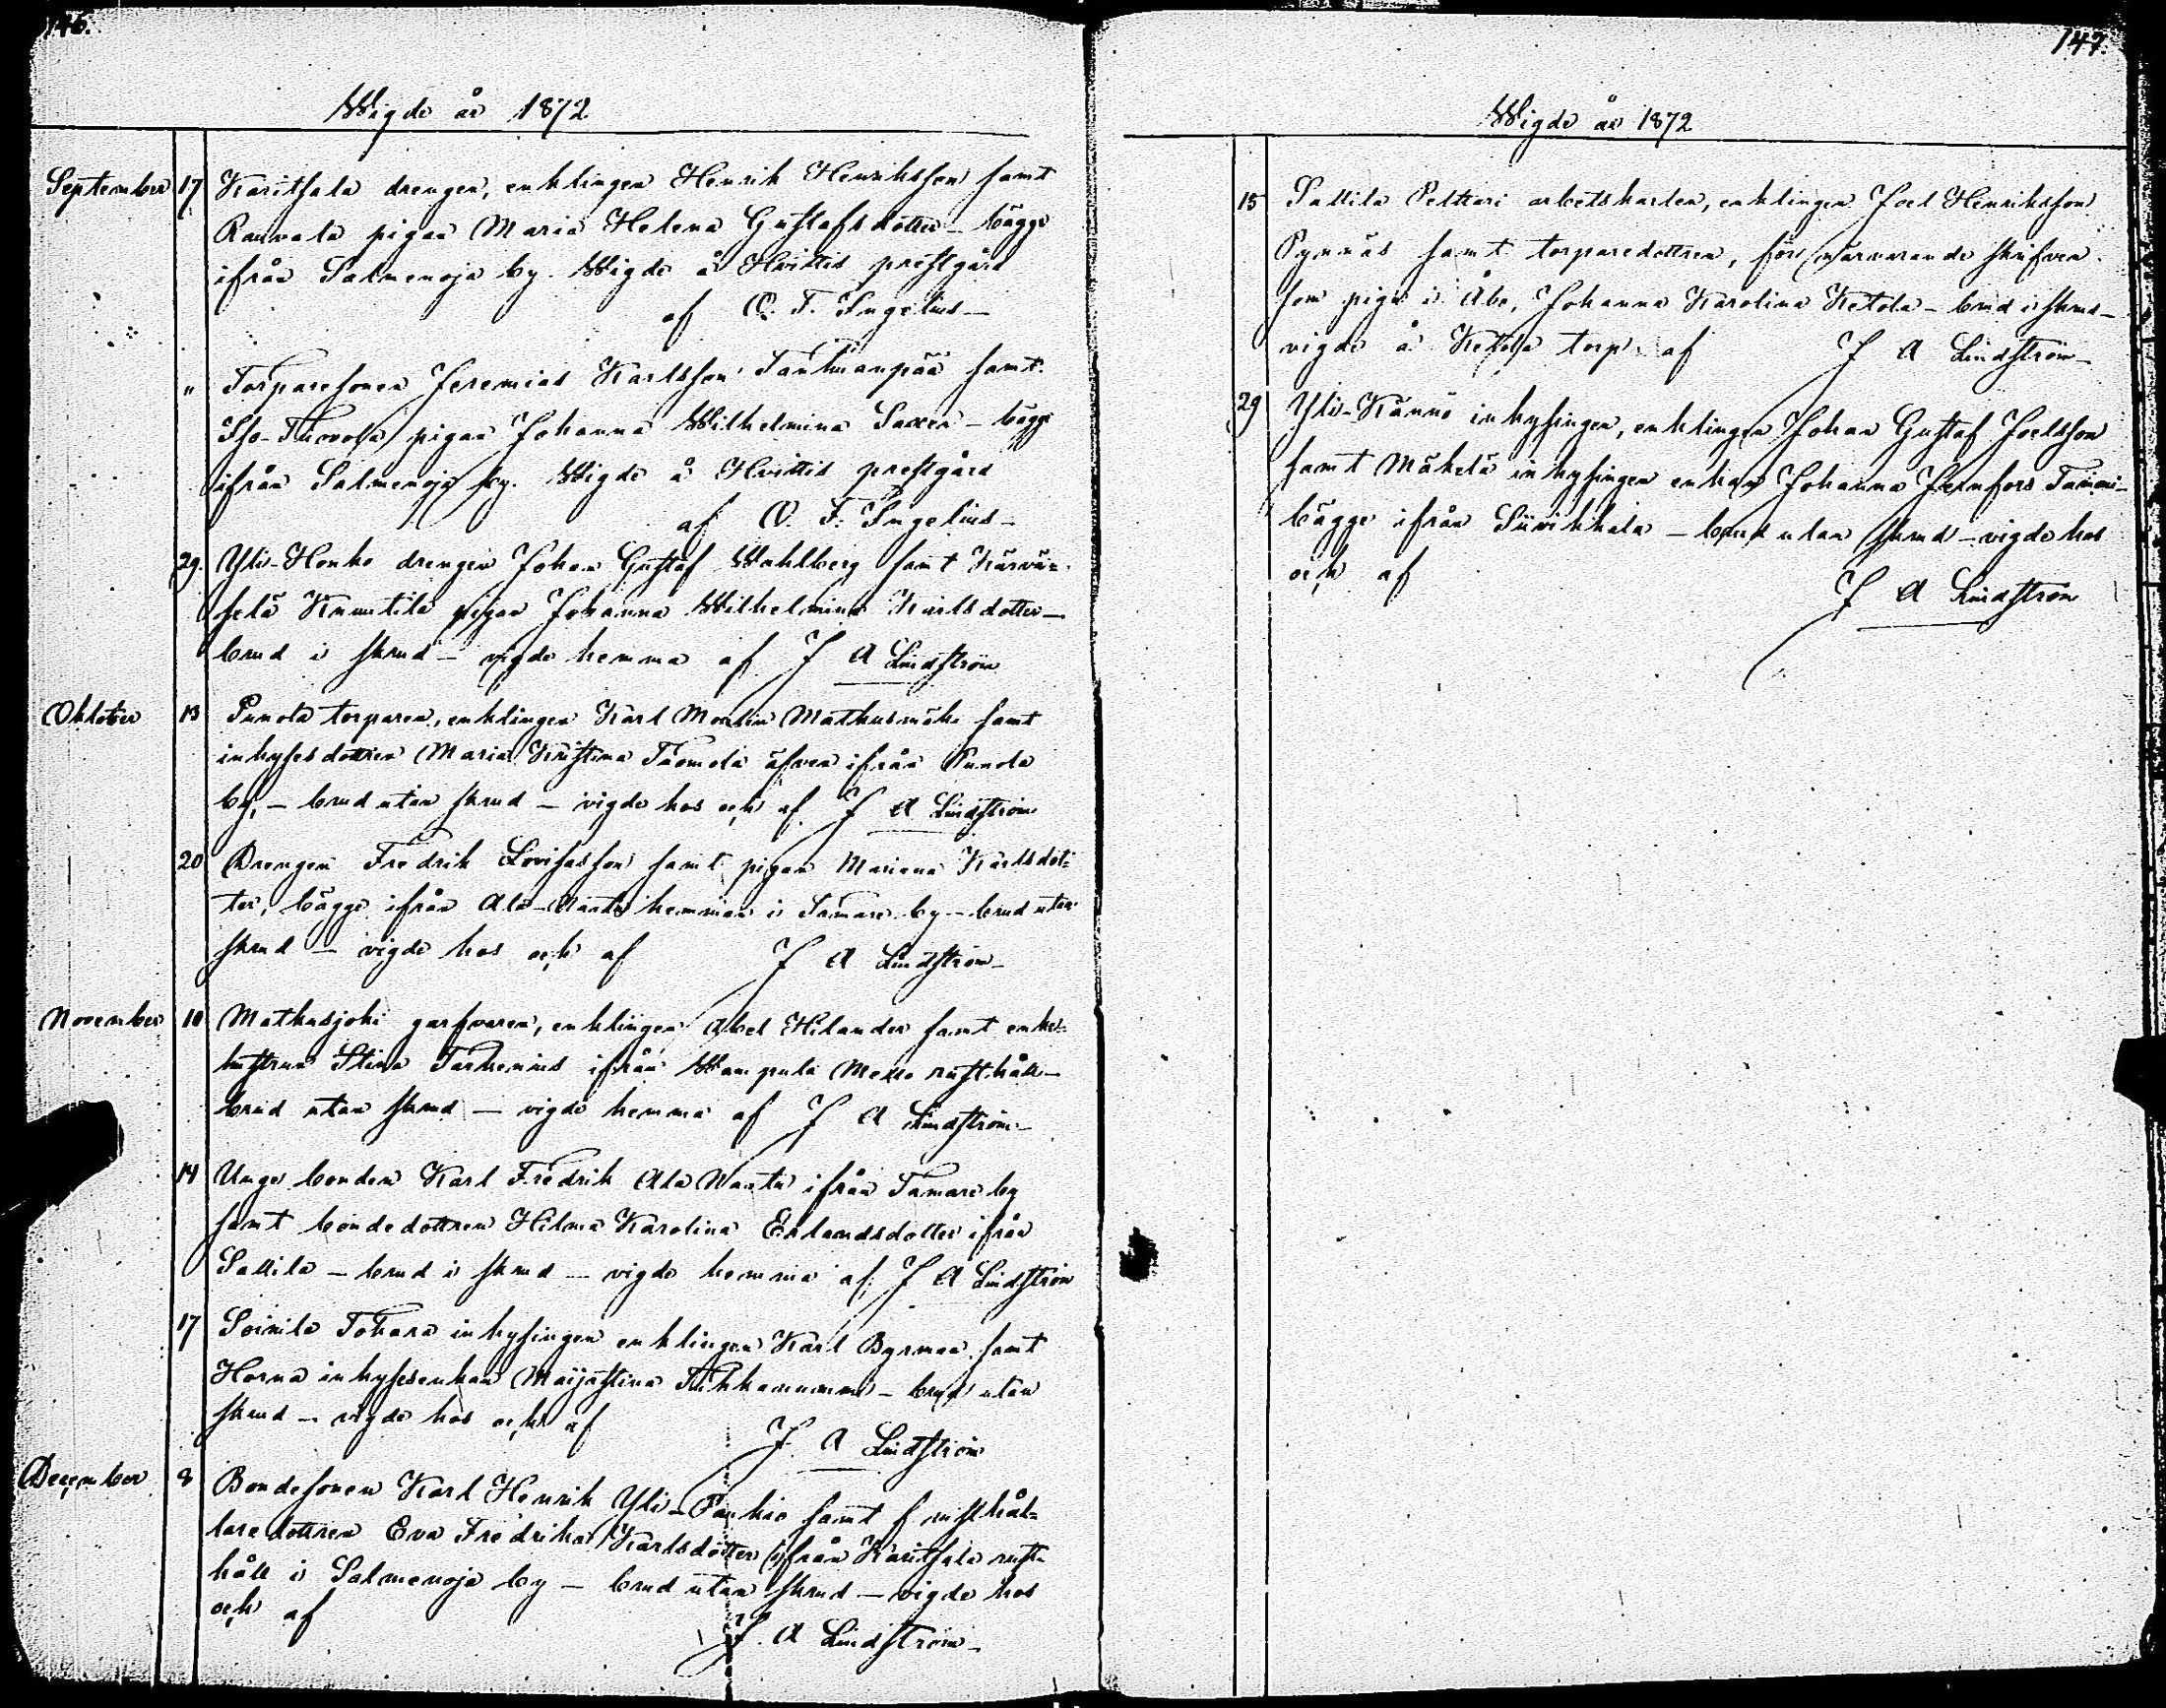 146.
Wigde år 1872
September 17 Karitsala drengen, enklingen Henrik Henriksson samt
Rauvala pigan Maria Helena Gustafsdotter – bägge
ifrån Salmenoja by. Wigde å Hvittis prestgård
af O. F. Ingelius –
" Torparesonen Jeremias Karlsson Tantinanpää samt
Iso-Thovola pigan Johanna Wilhelmina Saxen – bägge
ifrån Salmenoja by. Wigde å Hvittis prestgård
af O. F. Ingelius –
29. Yli-Honko drengen Johan Gustaf Wahlberg samt Kärvä=
selä Knuutila pigan Johanna Wilhelmina Karlsdotter –
brud i skrud – vigde hemma af J A Lindström
Oktober 13 Punola torparen, enklingen Karl Malin Matkusmäki samt
inhysesdottren Maria Kristina Tuomola äfven ifrån Punola
by, – brud utan skrud – vigde hos och af J A Lindström
20 Drengen Fredrik Lovisasson samt pigan Mariana Karlsdot=
ter, bägge ifrån Ala-Naatu hemman i Tamare by – brud utan
skrud – vigde hos och af J A Lindström –
November 10 Matkusjoki garfvaren, enklingen Abel Hilander samt enke=
hustrun Stina Tarkenius ifrån Wampula Mello rusthåll –
brud utan skrud – vigde hemma af J A Lindström –
14 Unge bonden Karl Fredrik Ala Naatu ifrån Tamare by
samt bondedottren Hilma Karolina Erlandsdotter ifrån
Sallila – brud i skrud – vigde hemma af J A Lindström
17 Soinila Tohara inhysingen enklingen Karl Byrman samt
Horna inhysesenkan Maijastina – brud utan
skrud – vigde hos och af
J. A Lindström
December 8 Bondesonen Karl Henrik Yli-Pankio samt f rusthål=
laredottren Eva Fredrika Karlsdotter ifrån Karitsala rust=
håll i Salmenoja by – brud utan skrud – vigde hos
och af
J. A Lindström –
147.
Wigde år 1872
15 Sallila Pelttari arbetskarlen, enklingen Joel Henriksson
Pynnäs samt torparedottren, för närvarande skrifven
som piga i Åbo, Johanna Karolina Ketola – brud i skrud –
vigde å Ketola torp af J A Lindström –
29 Yli-Kännö inhysingen, enklingen Johan Gustaf Joelsson
samt Mäkelä inhysingen enkan Johanna Jernfors Tammi –
bägge ifrån Suvikkala – brud utan skrud – vigde hos
och af
J A Lindström